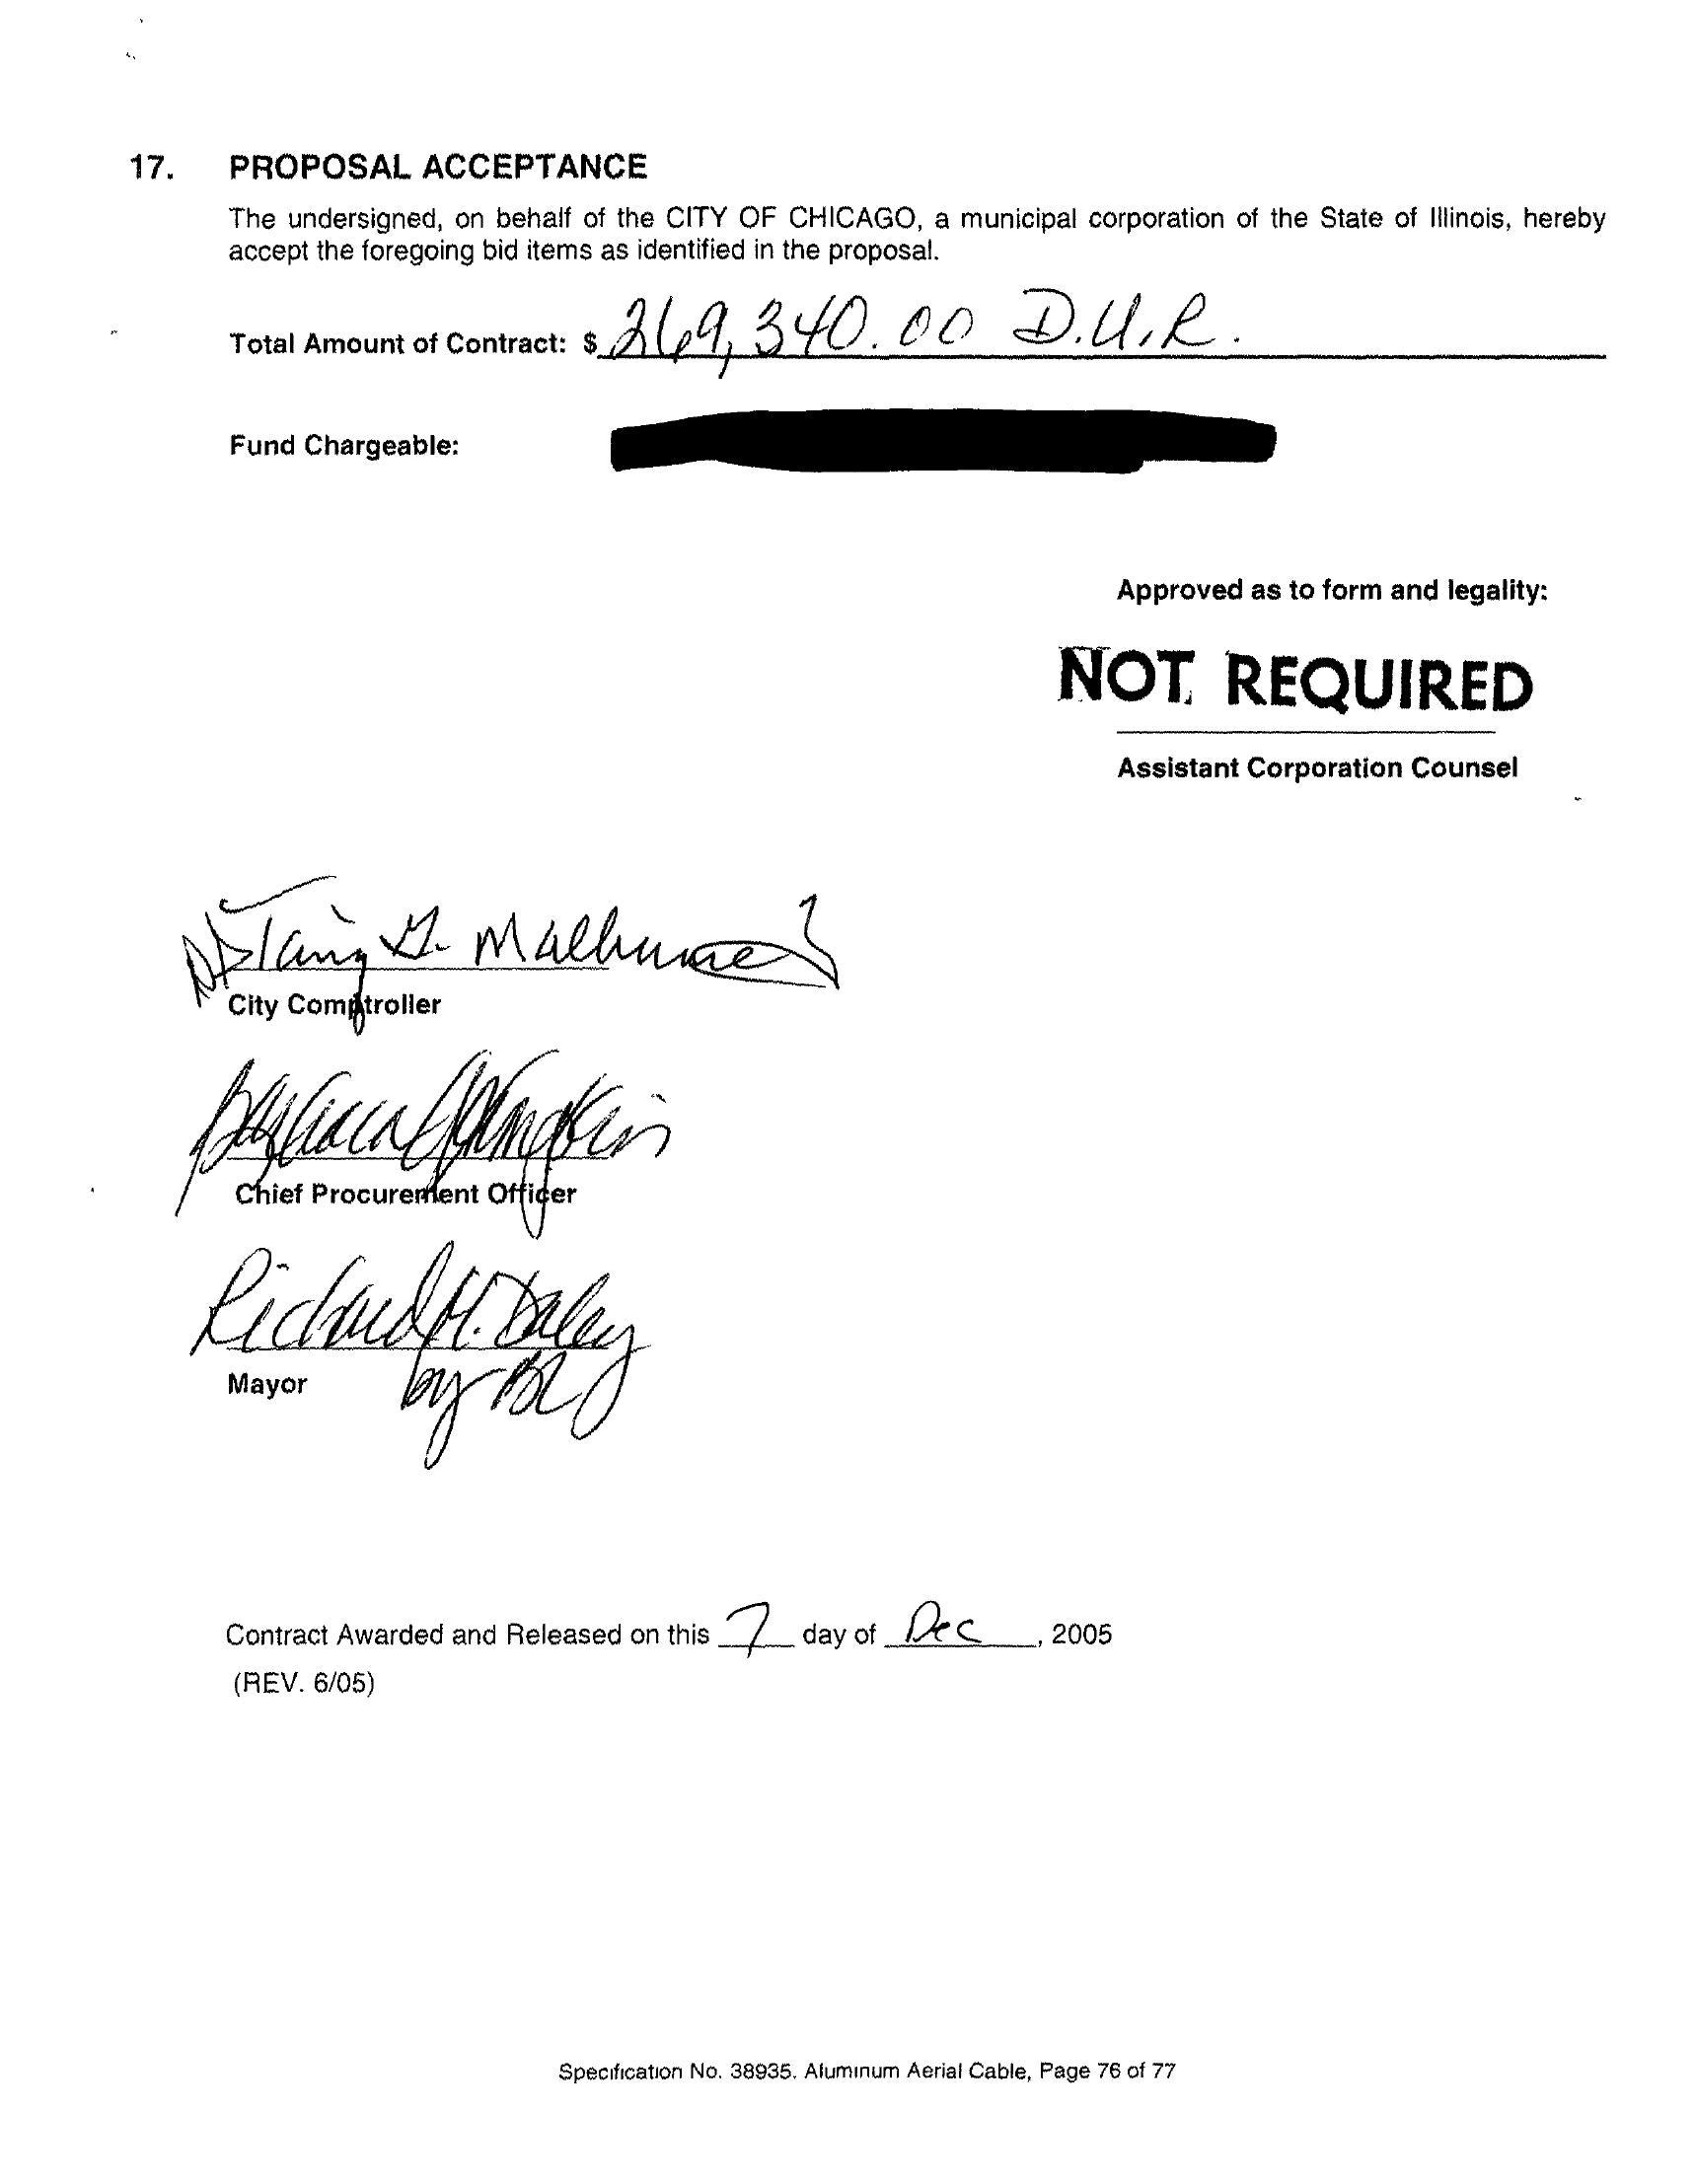 17. PROPOSAL ACCEPTANCE
The undersigned, on behalf of the CITY OF CHICAGO, a municipal corporation of the State of Illinois, hereby
accept the foregoing bid items as identified in the proposal.
Total Amount of Contract: $ 269,340.00 D.U.R.
Fund Chargeable:
Approved as to form and legality:
NOT REQUIRED
Assistant Corporation Counsel
City Comptroller
Chief Procurement Officer
Richard M. Daley
Mayor by
Contract Awarded and Released on this 7 day of Dec, 2005
(REV. 6/05)
Specification No. 38935. Aluminum Aerial Cable, Page 76 of 77